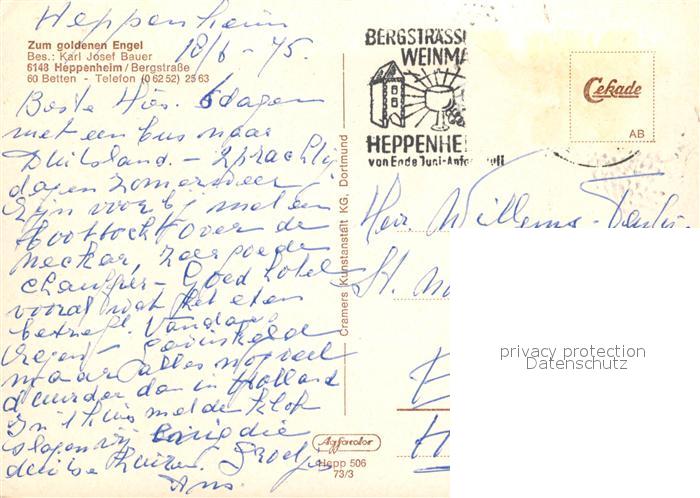 Heppenheim
18/6 - 75.
Zum goldenen Engel
Bes.: Karl Josef Bauer
6148 Heppenheim/Bergstraße
60 Betten - Telefon (06252) 2563
Beste Hes. 6 dagen
met een bus naar
Duitsland. - 2 prachtig
dagen zomerweer
zijn voorbij met een
boottocht over de
Neckar, zeer goede
chauffeur - Goed hotel
vooral wat het eten
betreft. Vandaag
regen -
maar alles nog veel
duurder dan in Holland
In 't huis met de klok
slapen wij
deuren. Groetjes
Ans.
BERGSTRÄSS
WEINMA
HEPPENHE
von Ende Juni-Anfa uli
Cekade
AB
Cramers Kunstanstalt KG, Dortmund
Her Willems-
St.
privacy protection
Datenschutz
Agfacolor
Hepp 506
73/3